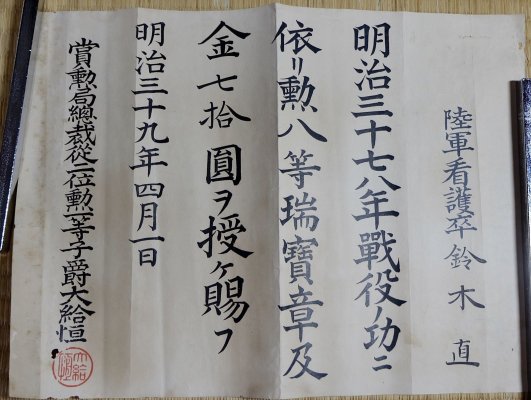 陸軍看護卒鈴木直
明治三十七八年戰役ノ功ニ
依リ勲八等瑞寶章及
金七拾圓ヲ授ケ賜フ
明治三十九年四月一日
賞勲局總裁從二位勲一等子爵大給恒
大給恒